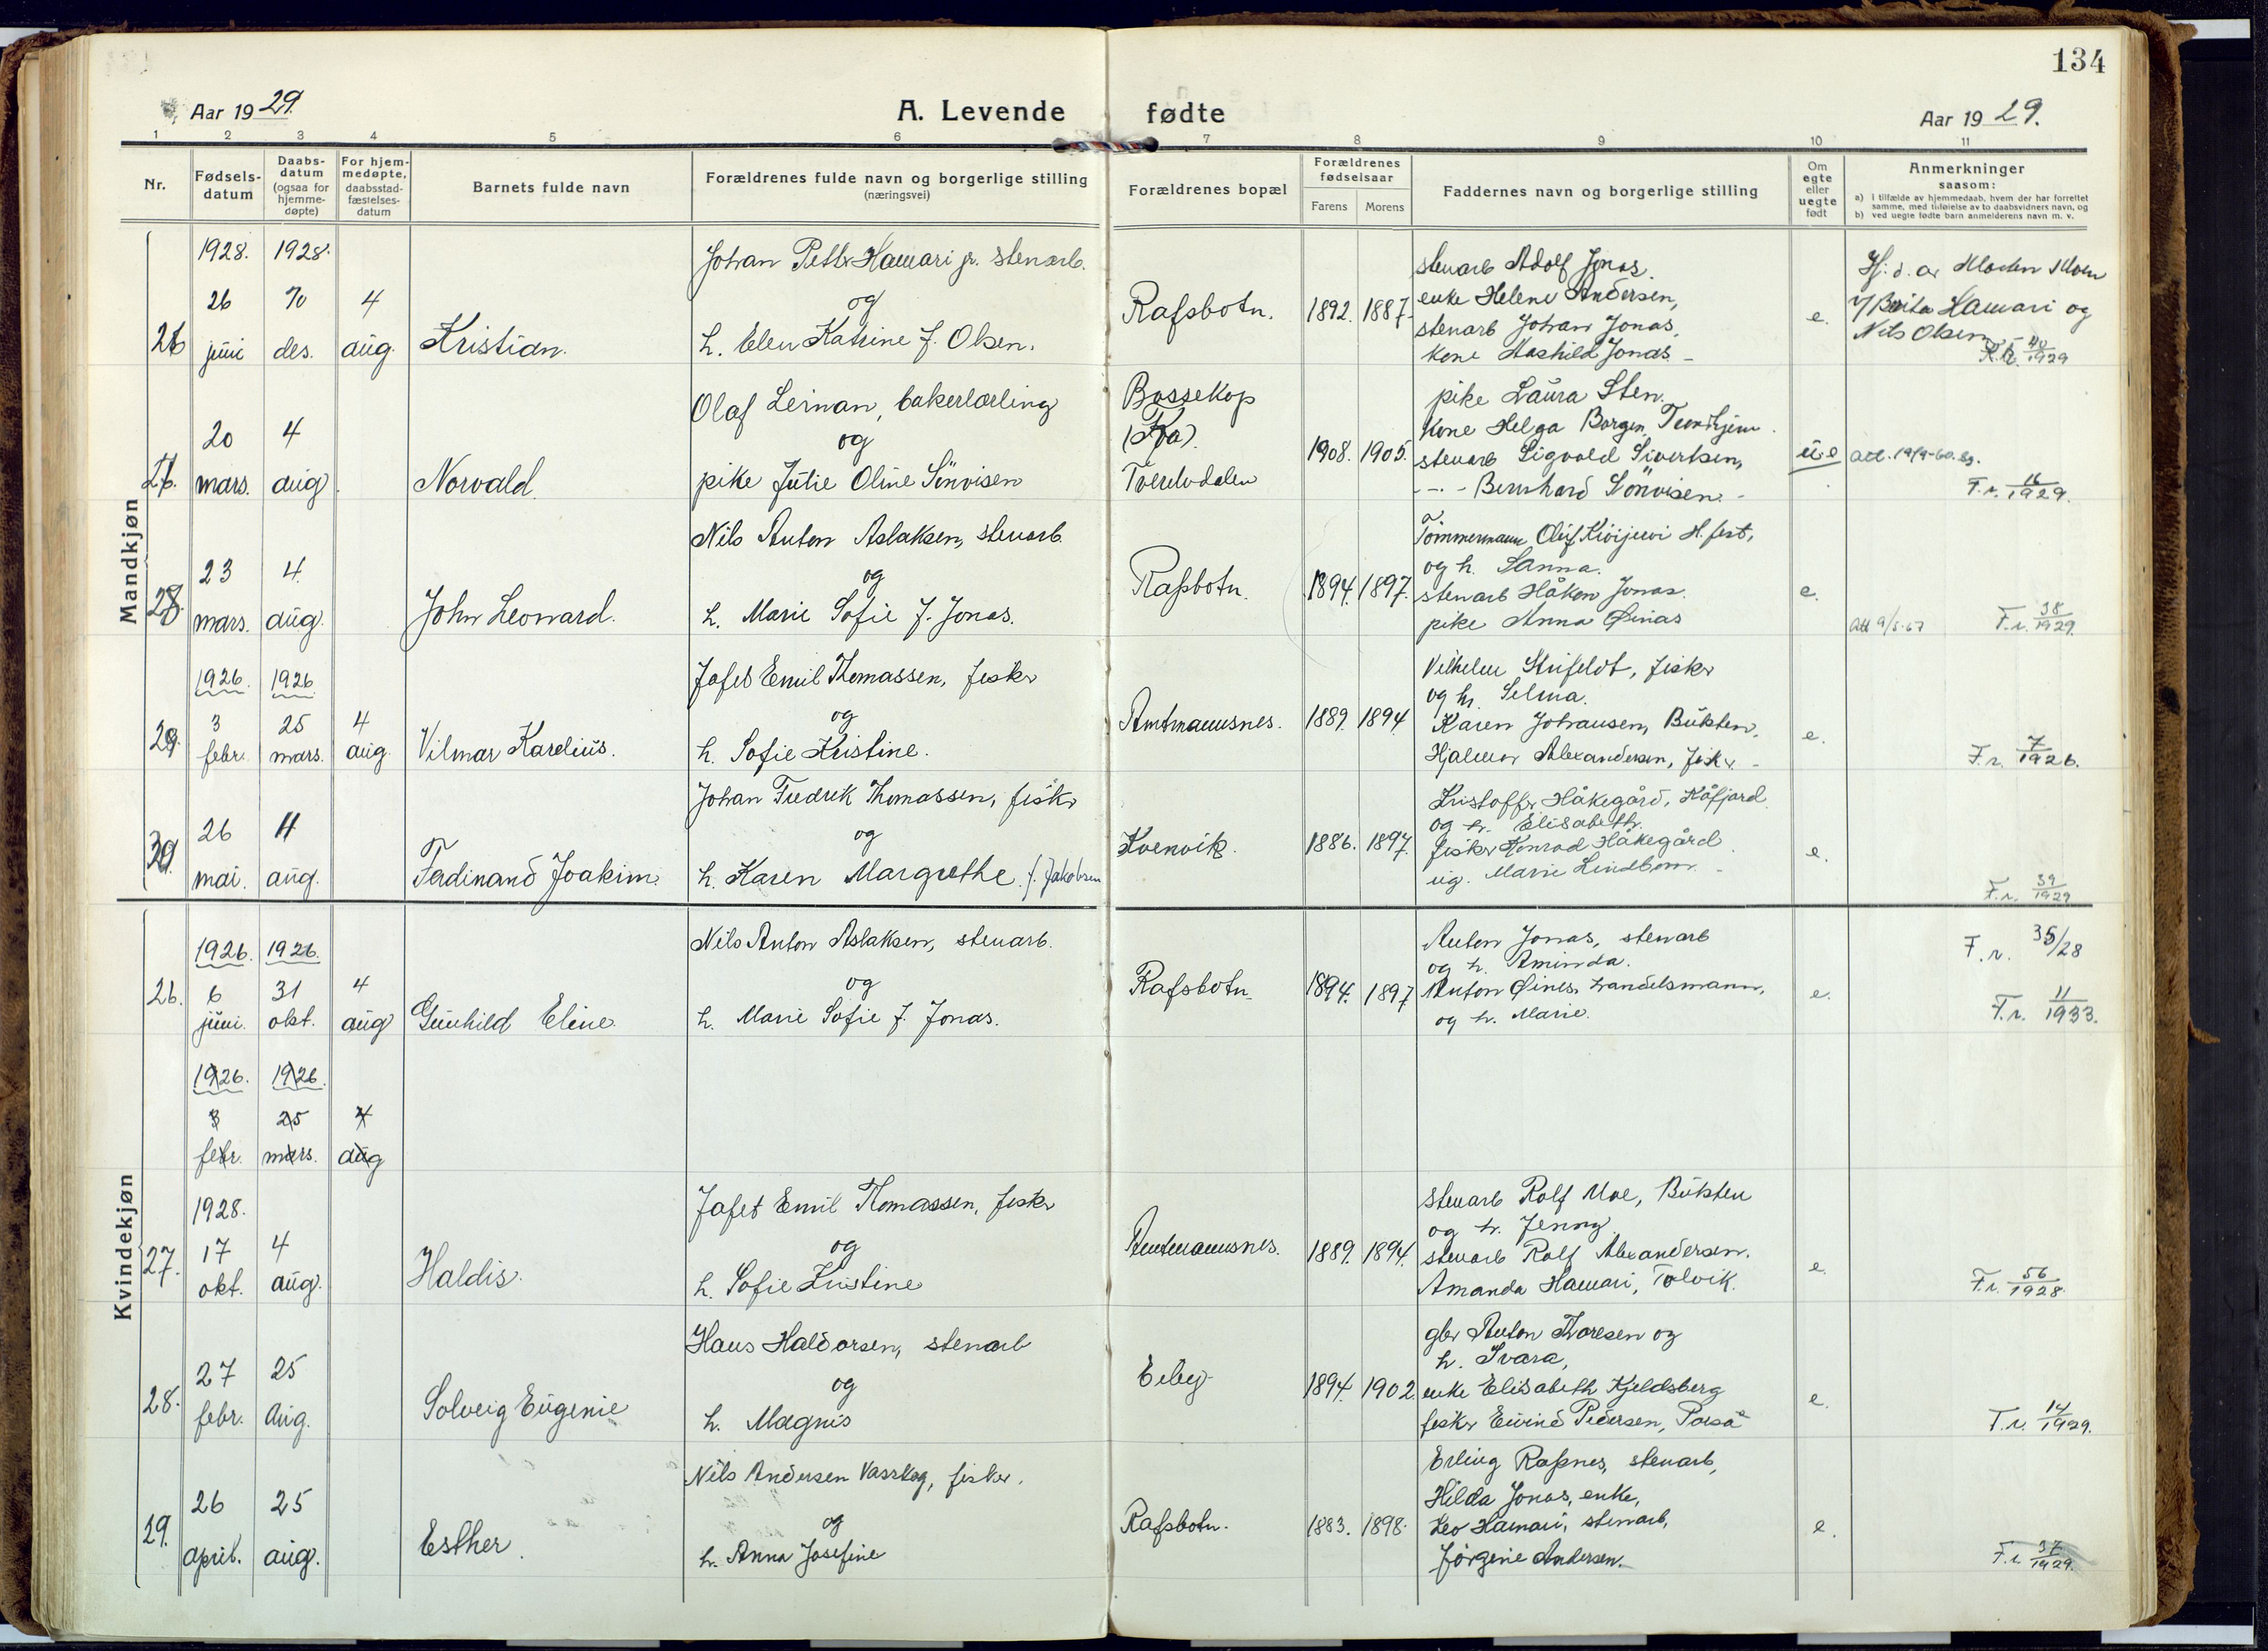 134
Aar 1929.
A. Levende fødte
Aar 1929.
1 2 3 4 5 6 7 8 9 10 11
Nr.
Fødsels-
datum
Daabs-
datum
(ogsaa for
hjemme-
døpte)
For hjem-
medøpte,
daabsstad-
fæstelses-
datum
Barnets fulde navn
Forældrenes fulde navn og borgerlige stilling
(næringsvei)
Forældrenes bopæl
Forældrenes
fødselsaar
Farens Morens
Faddernes navn og borgerlige stilling
Om
egte
eller
uegte
født
Anmerkninger
saasom:
a) i tilfælde av hjemmedaab, hvem der har forrettet
samme, med tilføielse av to daabsvidners navn, og
b) ved uegte fødte barn anmelderens navn m. v.
Mandkjøn
1928. 1928.
26 juni
des.
4 aug.
Kristian.
Johan Hamari jr. stenarb.
og
h. Elen Katrine f. Olsen.
Rafsbotn.
1892. 1887.
stenarb Adolf Jonas.
enke Helene Andersen,
stenarb Johan Jonas,
kone Jonas. -
e.
Hamari og
Nils Olsen
1929
20 mars.
4 aug.
Norvald.
Olaf Leinan, bakerlærling
og
pike Julie Oline Sönvisen
Bossekop
Tverelvdalen
1908. 1905.
pike Laura Sten.
kone Helga Borgen, Trondhjem.
stenarb Sigvald Sivertsen,
- - - Bernhard Sönvisen. -
u.e
F.r. 16/1929.
28.
23 mars.
4. aug.
John Leonard.
Nils Anton Aslaksen, stenarb.
og
h. Marie Sofie f. Jonas.
Rafsbotn.
1894. 1897.
Tömmermann H.fest,
og h. Sanna.
stenarb Håkon Jonas.
pike Anna Øinas
e.
Att 9/5-67
F.r. 38/1929.
1926. 1926.
29.
3 febr.
25 mars.
4 aug.
Vilmar Karelius.
Jafet Emil Thomassen, fisker
og
h. Sofie Kristine.
Amtmannsnes.
1889. 1894
Vilhelm Strifeldt, fisker
og h. Selma.
Karen Johansen, Bukten,
Hjalmar Alexandersen, fisker -
e.
F.r. 7/1926.
30.
26 mai.
4 aug.
Ferdinand Joakim.
Johan Fredrik Thomassen, fisker
og
h. Karen Margrethe f. Jakobsen
Kvenvik.
1886. 1897.
Kristoffer Håkegård, Kåfjord.
og h. Elisabeth.
fisker Konrad Håkegård
ug. Marie Lindbom. -
e.
F.r. 39/1929
Kvindekjøn
1926. 1926.
26.
6 juni.
31 okt.
4 aug
Gunhild Eline.
Nils Anton Aslaksen, stenarb.
og
h. Marie Sofie f. Jonas.
Rafsbotn.
1894. 1897
Anton Jonas, stenarb
og h. Aminda.
Anton Øines, handelsmann,
og h. Marie.
e.
F.r. 35/28
F.r. 11/1933.
1926. 1926.
3 febr.
25 mars.
4 aug
1928.
27.
17 okt.
4 aug.
Haldis.
Jafet Emil Thomassen, fisker
og
h. Sofie Kristine
Amtmannsnes.
1889. 1894.
stenarb Rolf Moe, Bukten
og h. Jenny
stenarb Rolf Alexandersen.
Amanda Hamari, Tolvik.
e.
F.r. 56/1928.
28.
27 febr.
25 Aug.
Solveig Eugenie
Hans Haldorsen, stenarb
og
h. Magnis
Eiby
1894. 1902.
gbr Anton Thoresen og
h. Svara,
enke Elisabeth Kjeldsberg
fisker Eivind Pedersen, Porsa
e.
F.r. 14/1929.
29.
26 april.
25 aug.
Esther.
Nils Andersen Vasskog, fisker.
og
h. Anna Josefine
Rafsbotn.
1883. 1898.
Erling Rafsnes, stenarb,
Hilda Jonas, enke,
Leo Hamari, stenarb,
Jörgine Andersen. -
e.
F.r. 37/1929.